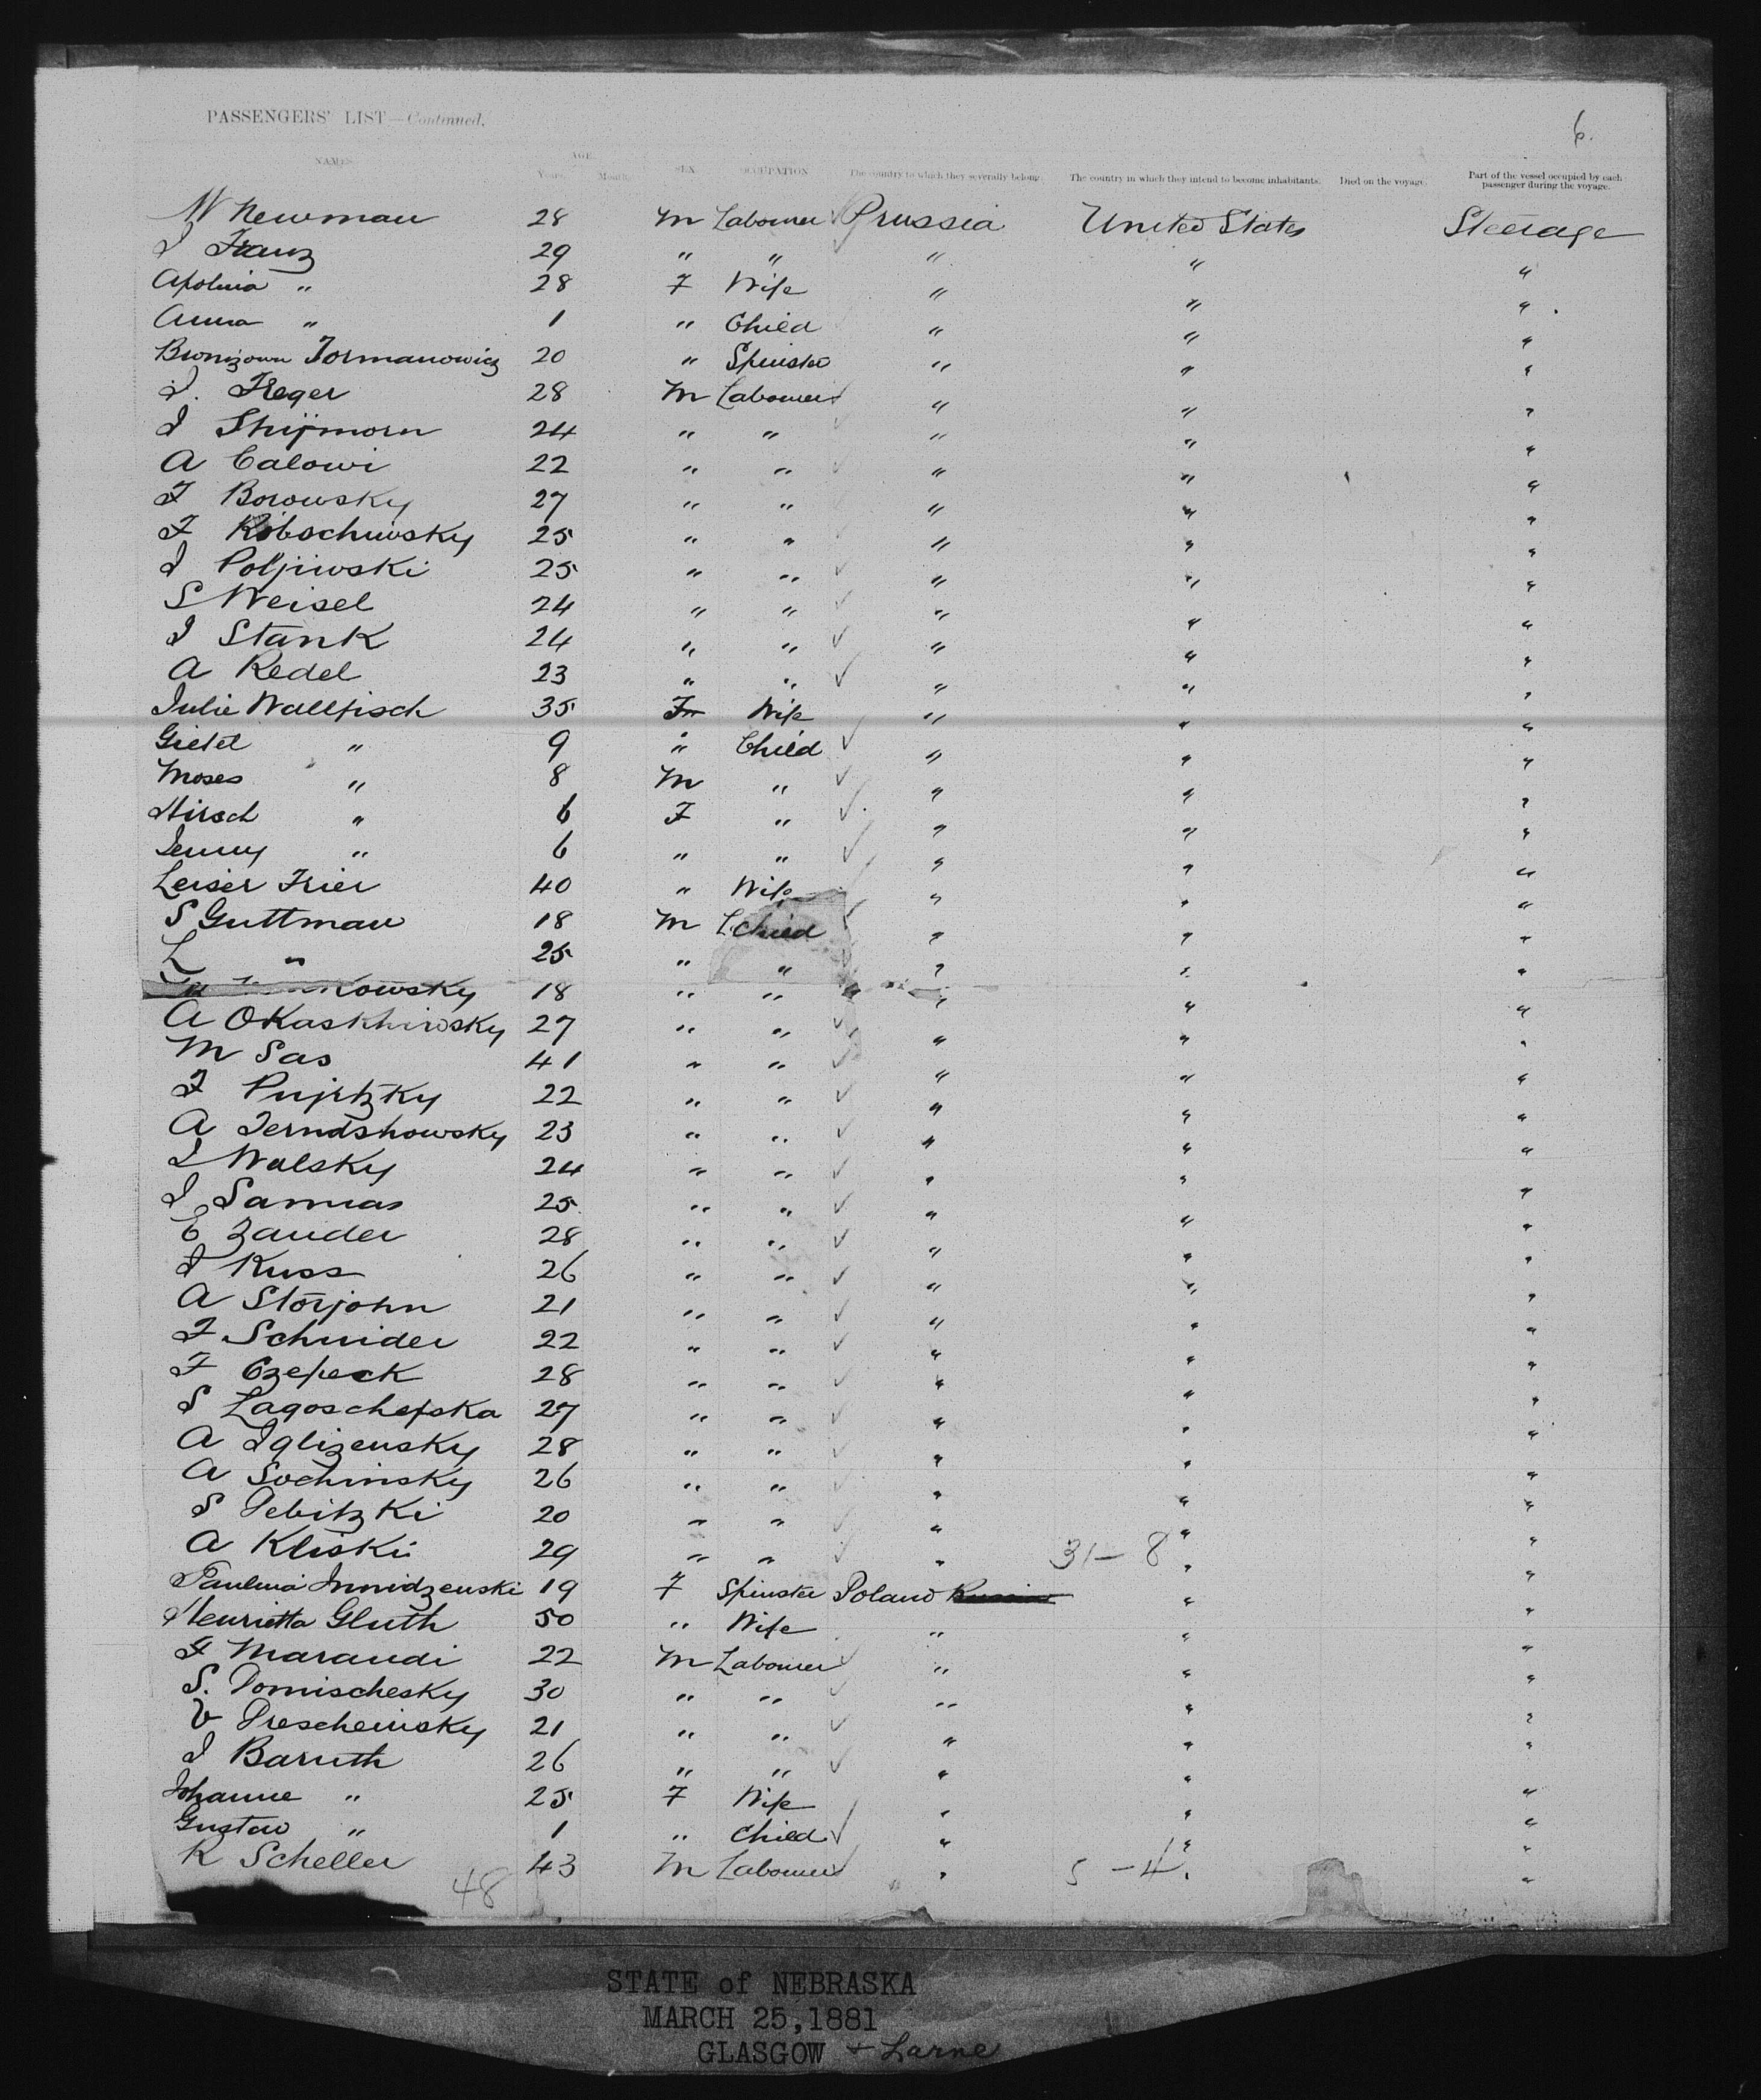 6.
PASSENGERS' LIST—Continued.
NAMES AGE SEX OCCUPATION The country to which they severally belong. The country in which they intend to become inhabitants. Died on the voyage. Part of the vessel occupied by each passenger during the voyage.
Years. Months.
W Newman 28 M Labourer Prussia United States Steerage
J Franz 29 " " " " "
Apolinia " 28 F Wife " " "
Anna " 1 " Child " " "
Tormanowicz 20 " Spinster " " "
J. Freger 28 M Labourer " " "
J 24 " " " " "
A Calowi 22 " " " " "
F Borowsky 27 " " " " "
F Ribschinsky 25 " " " " "
J Poljiwski 25 " " " " "
S Weisel 24 " " " " "
J Stank 24 " " " " "
A Redel 23 " " " " "
Julie Wallfisch 35 F Wife " " "
Gietel " 9 " Child " " "
Moses " 8 M " " " "
Hirsch " 6 F " " " "
Jenny " 6 " " " " "
Leiser Frier 40 " Wife " " "
S Guttman 18 M Child " " "
L " 25 " " " " "
18 " " " " "
A Okaskhirosky 27 " " " " "
M Sas 41 " " " " "
F Pujetzky 22 " " " " "
A Jerndshowsky 23 " " " " "
J Walsky 24 " " " " "
J Sannas 25 " " " " "
E Zander 28 " " " " "
J Kuss 26 " " " " "
A Storjohn 21 " " " " "
F Schnider 22 " " " " "
F Czepeck 28 " " " " "
S Lagoschefska 27 " " " " "
A Iglizensky 28 " " " " "
A Sochinsky 26 " " " " "
S Pebitzki 20 " " " " "
A Kliski 29 " " " 31-8 " "
Paulina 19 F Spinster Poland Russia " "
Henrietta Gluth 50 " Wife " " "
F Maraudi 22 M Labourer " " "
S. Domischesky 30 " " " " "
V Preschewisky 21 " " " " "
J Baruth 26 " " " " "
Johanne " 25 F Wife " " "
Gustav " 1 " Child " " "
K Scheller 43 M Labourer " 5-4 " "
48
STATE of NEBRASKA
MARCH 25, 1881
GLASGOW + Larne